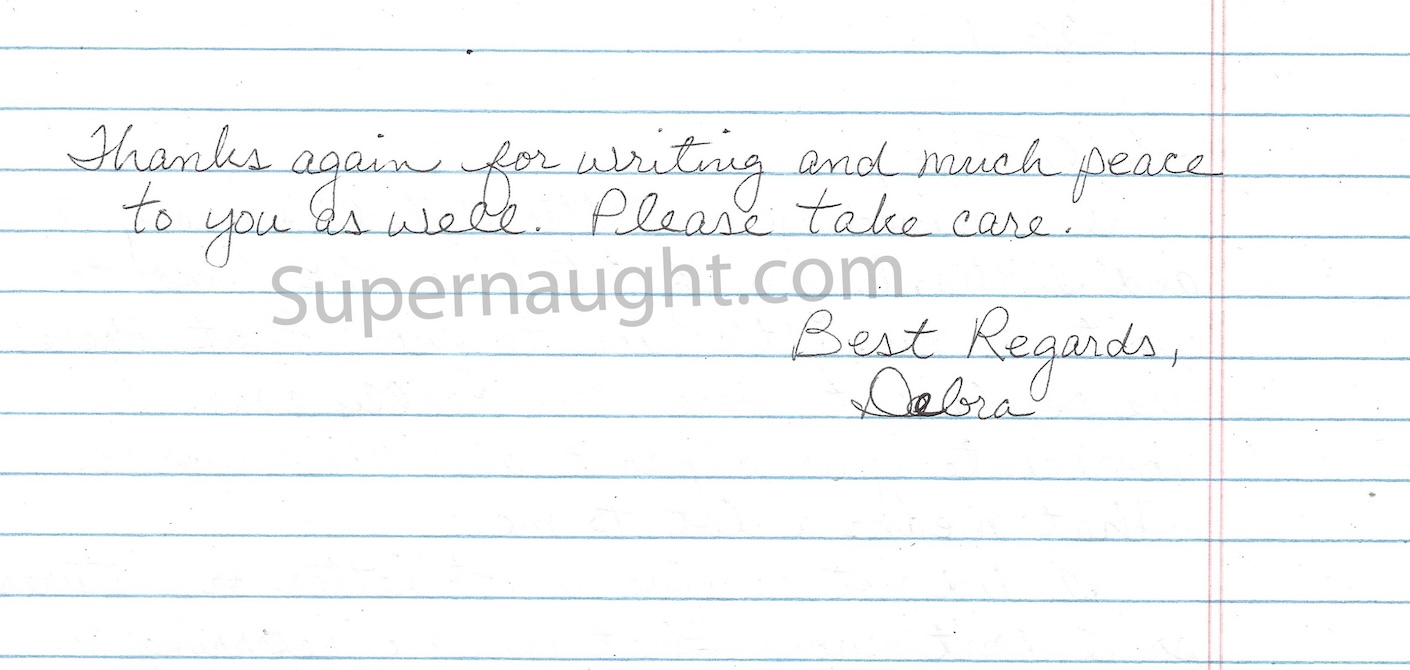 Thanks again for writing and much peace
to you as well. Please take care.
Supernaught.com
Best Regards,
Debra